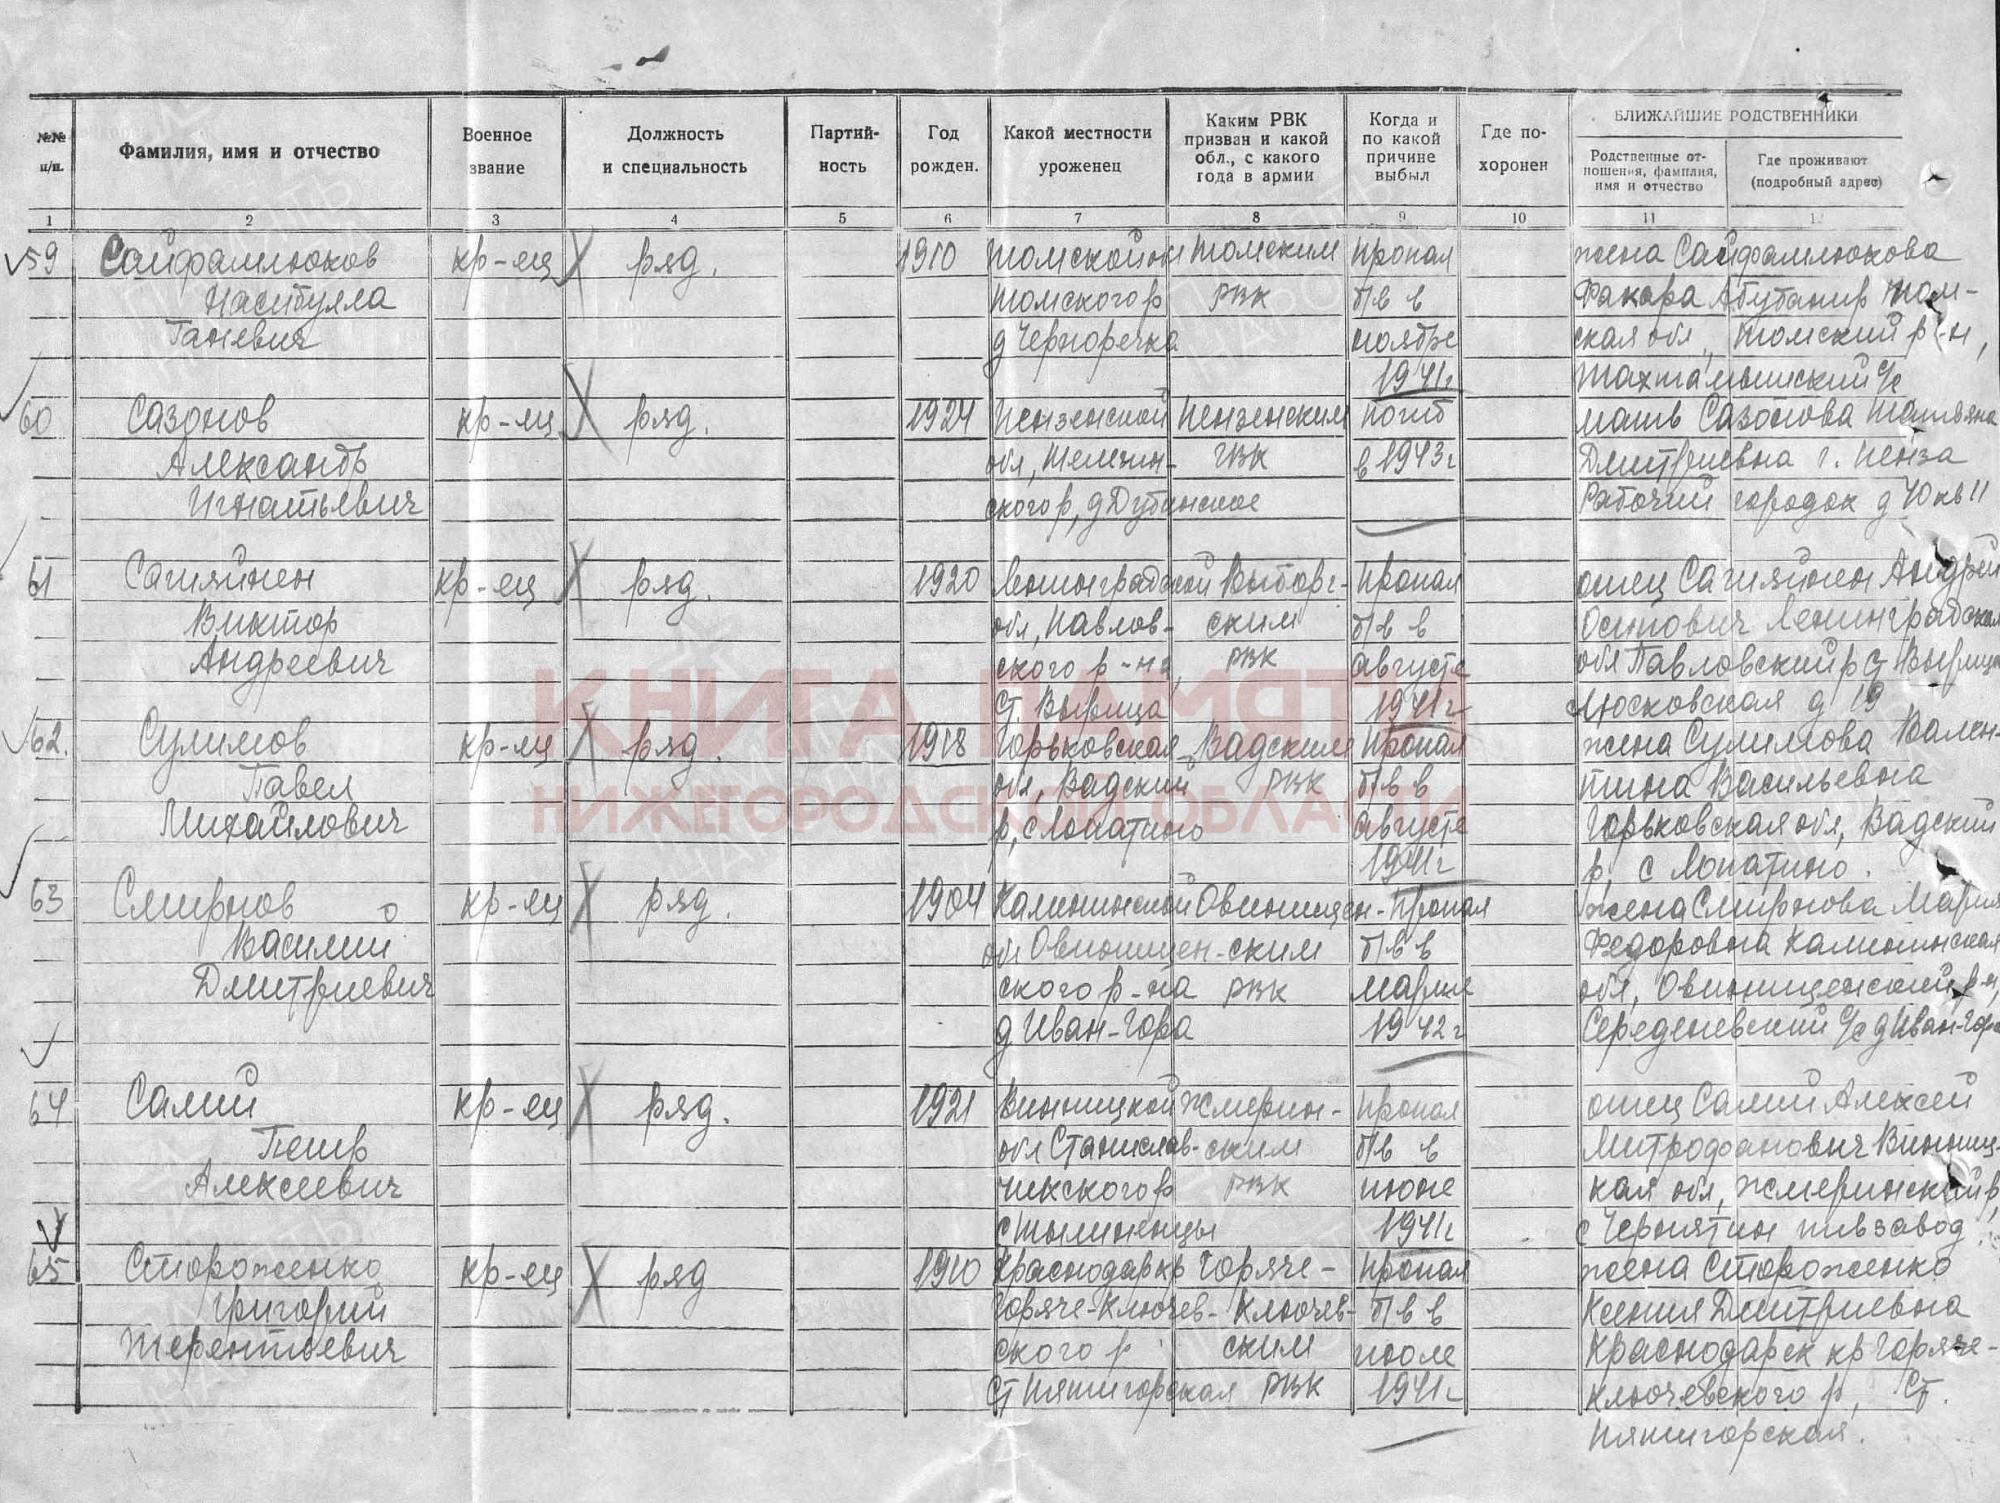 №№ п/п.
Фамилия, имя и отчество
Военное звание
Должность и специальность
Партий-ность
Год рожден.
Какой местности уроженец
Каким РВК призван и какой обл., с какого года в армии
Когда и по какой причине выбыл
Где по-хоронен
БЛИЖАЙШИЕ РОДСТВЕННИКИ
Родственные от-ношения, фамилия, имя и отчество
Где проживают (подробный адрес)
1 2 3 4 5 6 7 8 9 10 11 12
59 Сайфамлюков кр-ец ряд. 1910 Томской Томским пропал жена Сайфамлюкова
Томского р РВК б/в в Том-
Ганевич д Черноречка ноябре ская обл, Томский р-н,
1941г Тахтамышский с/с
60 Сазонов кр-ец ряд. 1924 Пензенской Пензенским погиб мать Сазонова Татьяна
Александр обл, ГВК в 1943г Дмитриевна г. Пенза
Игнатьевич ского р, Рабочий городок д 40 кв 11
61 кр-ец ряд. 1920 Ленинградской Выборг- пропал отец Андрей
Виктор обл, Павлов- ским б/в в Осипович Ленинградская
Андреевич ского р-на, РВК августе обл Павловский р
ст. Вырица 1941г д 19
62. Сулимов кр-ец ряд. 1918 Горьковская Вадским пропал жена Сулимова Вален-
Павел обл, Вадский РВК б/в в тина Васильевна
Михайлович р, с Лопатино августе Горьковская обл, Вадский
1941г р, с Лопатино.
63 Смирнов кр-ец ряд. 1904 Калининской Овинищен- пропал жена Смирнова Мария
Василий обл Овинищен- ским б/в в Федоровна Калининская
Дмитриевич ского р-на РВК марте обл, Овинищенский р-н,
д Иван-Гора 1942г с/с д Иван-Гора
64 Самий кр-ец ряд. 1921 Винницкой Жмерин- пропал отец Самий Алексей
Петр обл Станислав- ским б/в в Митрофанович Винниц-
Алексеевич чикского р РВК июне кая обл, Жмеринский р,
1941г с Чернятин завод.
65 Стороженко кр-ец ряд 1910 Краснодар кр Горяче- пропал жена Стороженко
Григорий Горяче-Ключев- Ключев- б/в в Ксения Дмитриевна
Терентьевич ского р ским июле Краснодарск кр Горяче-
ст Пятигорская РВК 1941г Ключевского р, ст.
Пятигорская.
КНИГА ПАМЯТИ
НИЖЕГОРОДСКОЙ ОБЛАСТИ